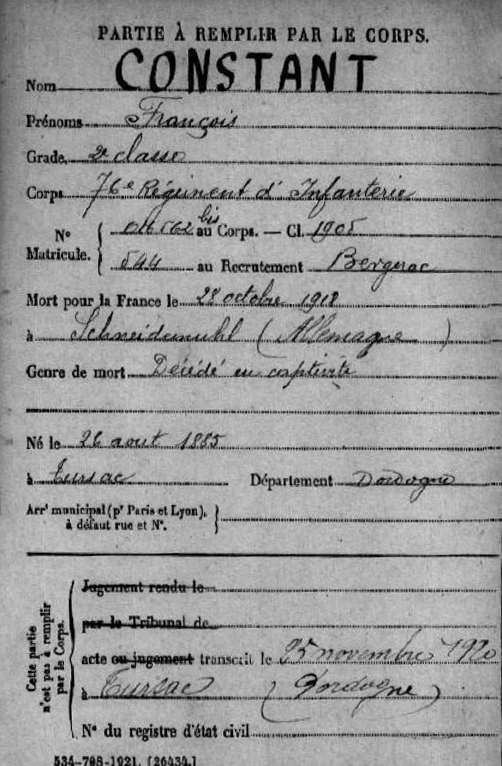 PARTIE À REMPLIR PAR LE CORPS.
Nom CONSTANT
Prénoms François
Grade 2e classe
Corps 76e Régiment d'Infanterie
N° Matricule. { 016562 bis au Corps. — Cl. 1905
544 au Recrutement Bergerac
Mort pour la France le 28 octobre 1918
à Schneidemuhl (Allemagne)
Genre de mort Décédé en captivité
Né le 26 aout 1885
à Tursac Département Dordogne
Arrt municipal (pr Paris et Lyon), à défaut rue et N°. }
Cette partie n'est pas à remplir par le Corps.
Jugement rendu le
par le Tribunal de
acte ou jugement transcrit le 25 novembre 1920
à Tursac (Dordogne)
N° du registre d'état civil
534-708-1921. [26434.]